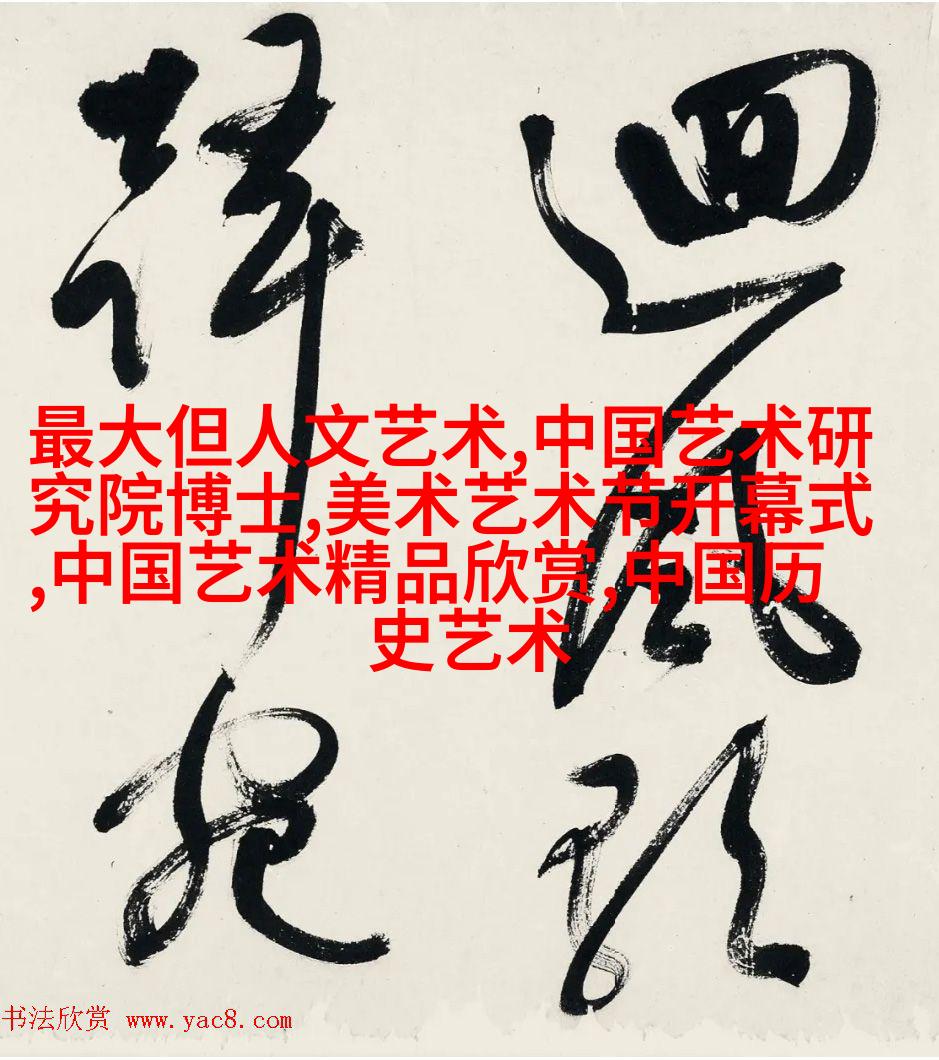 迴風
最大但人文艺术,中国艺术研
究院博士,美术艺术节开幕式
,中国艺术精品欣赏,中国历
史艺术
书法欣赏 www.yac8.com